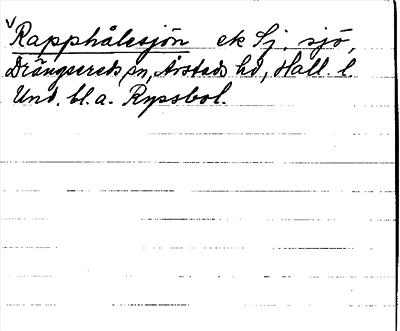 √Rapphålesjön ek Sj. sjö,
Drängsereds sn, Årstads hd, Hall. l.
Und. bl. a. Ryssbol.